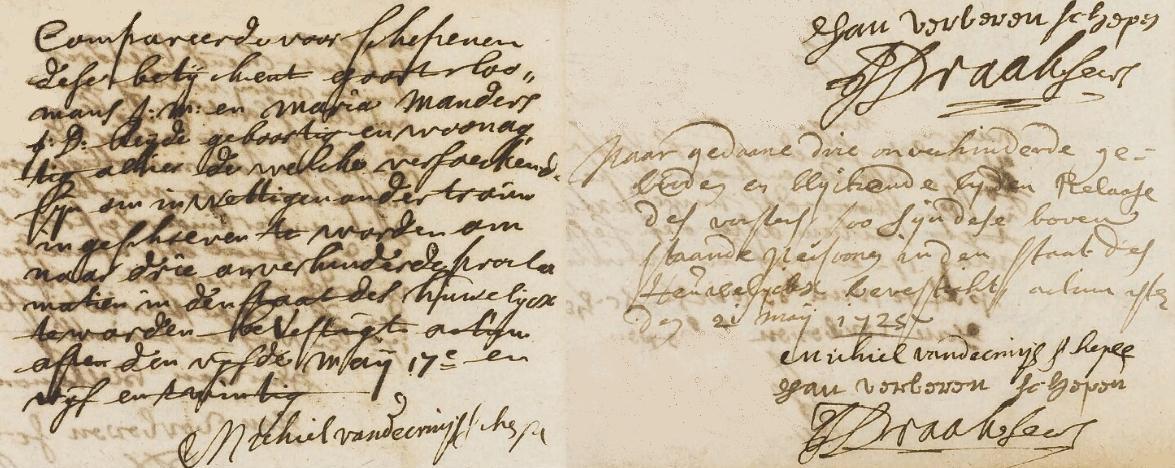 Compareerde voor schepenen
dese betijckent goort roo„
mans j: m: en maria manders
j: D: beijde geboortig en woonag„
tig alhier de welcke versoeckende
sijn om in wettigen ondertrouw
ingeschreven te worden om
naar drie onverhinderde procla
matien in den staat des huwelijcx
te worden bevestigt actum
asten den vijfde maij 17c en
vijf en twintig
Michiel vandecruijs schepe
Jan verberen schepen
Draak secrs
Naar gedaane drie onverhinderde ge-
boden en blijckende bij den Relaase
des vorsters soo sijn dese boven
staande persoonen in den staat des
Heuwelijckx bevestight actum asten
den 21 maij 1725
Michiel vandecruijs schepe
Jan verberen schepen
Draak secrs